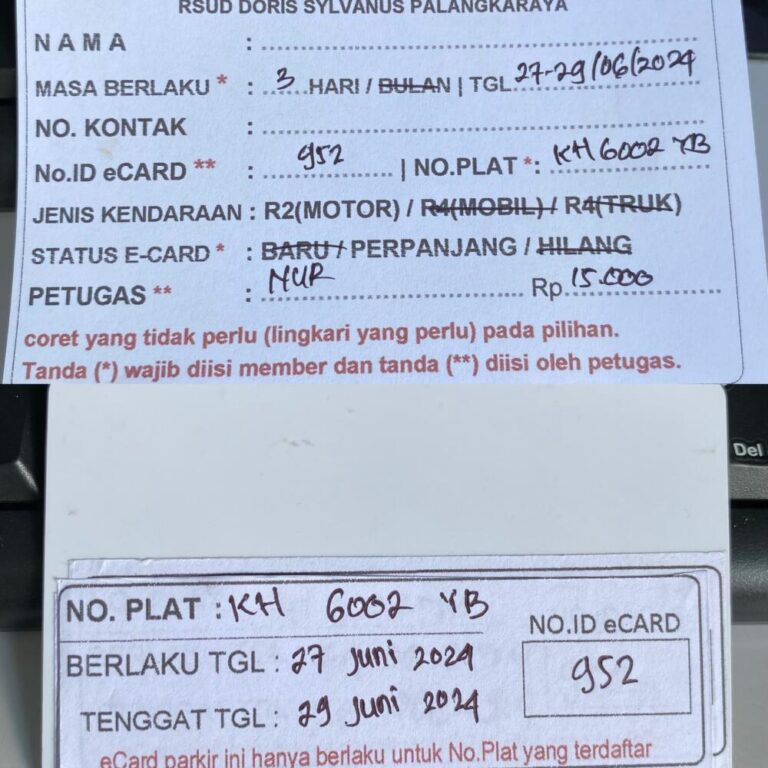 RSUD DORIS SYLVANUS PALANGKARAYA
NAMA :
MASA BERLAKU * : 3 HARI / BULAN | TGL 27-29/06/2024
NO. KONTAK :
No.ID eCARD ** : 952 | NO.PLAT *: KH 6002 YB
JENIS KENDARAAN : R2(MOTOR) / R4(MOBIL) / R4(TRUK)
STATUS E-CARD * : BARU / PERPANJANG / HILANG
PETUGAS ** : NUR Rp. 15.000
coret yang tidak perlu (lingkari yang perlu) pada pilihan.
Tanda (*) wajib diisi member dan tanda (**) diisi oleh petugas.
Del
NO. PLAT : KH 6002 YB
NO.ID eCARD
BERLAKU TGL : 27 Juni 2024
952
TENGGAT TGL : 29 Juni 2024
eCard parkir ini hanya berlaku untuk No.Plat yang terdaftar